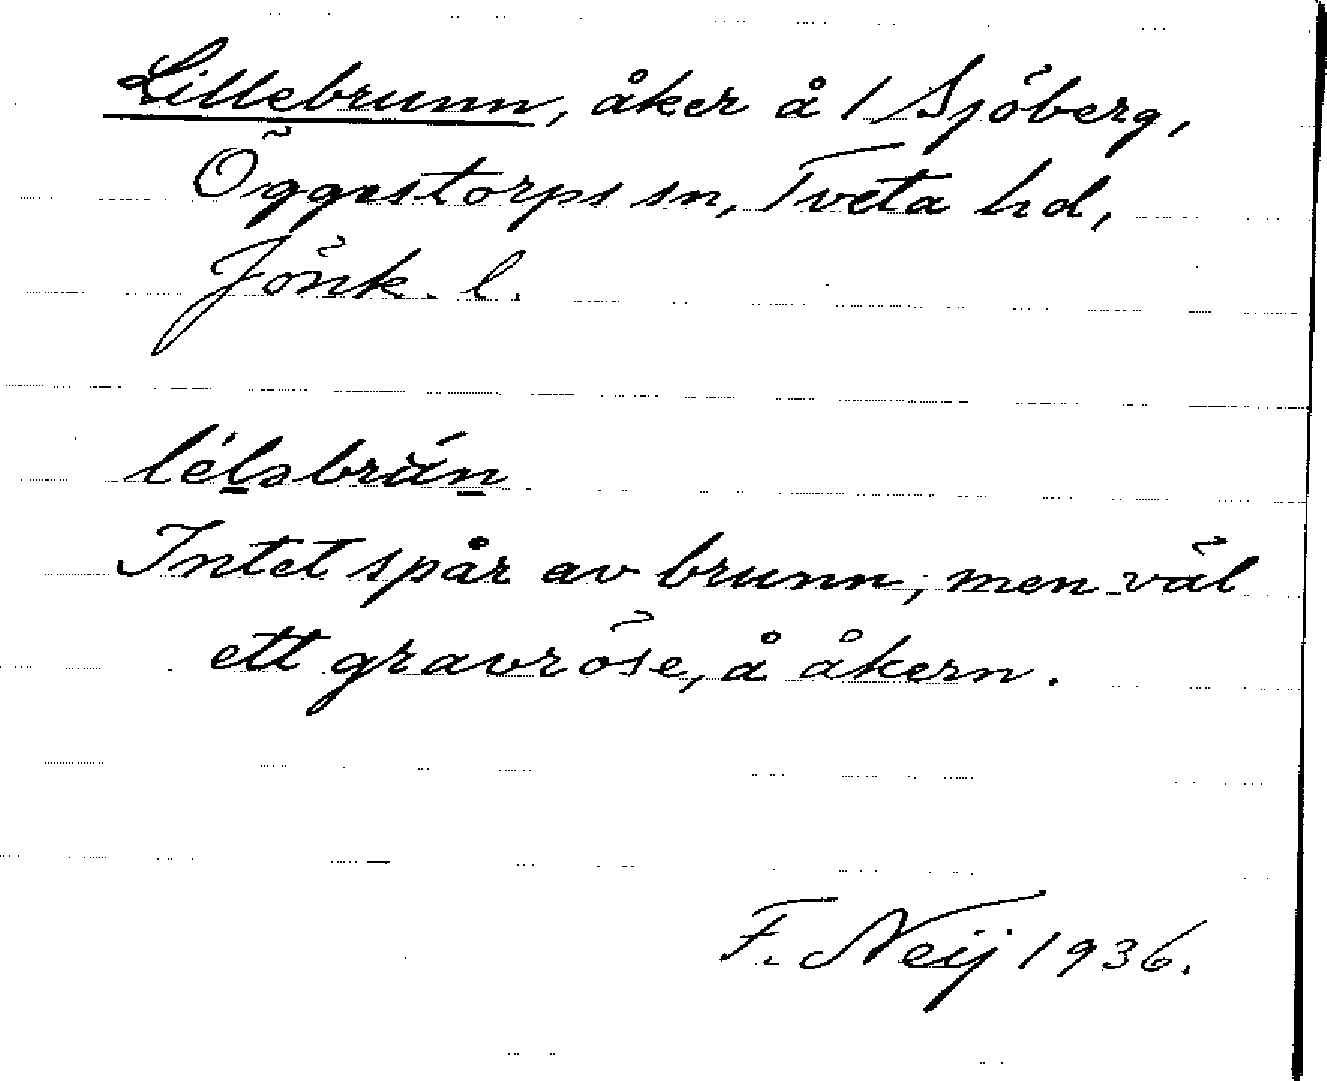 Lillebrunn, åker å 1 Sjöberg,
Öggestorps sn, Tveta hd,
Jönk. l.
Intet spår av brunn, men väl
ett gravröse, å åkern.
F. Neij 1936.